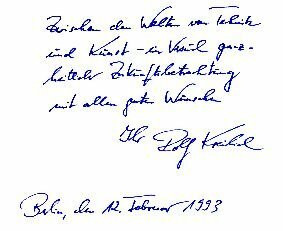 Zwischen den Welten von Technik
und Kunst – im Vorfeld ganz-
heitlicher Zukunftsbetrachtung
mit allen guten Wünschen
Ihr Rolf
Berlin, den 12. Februar 1993